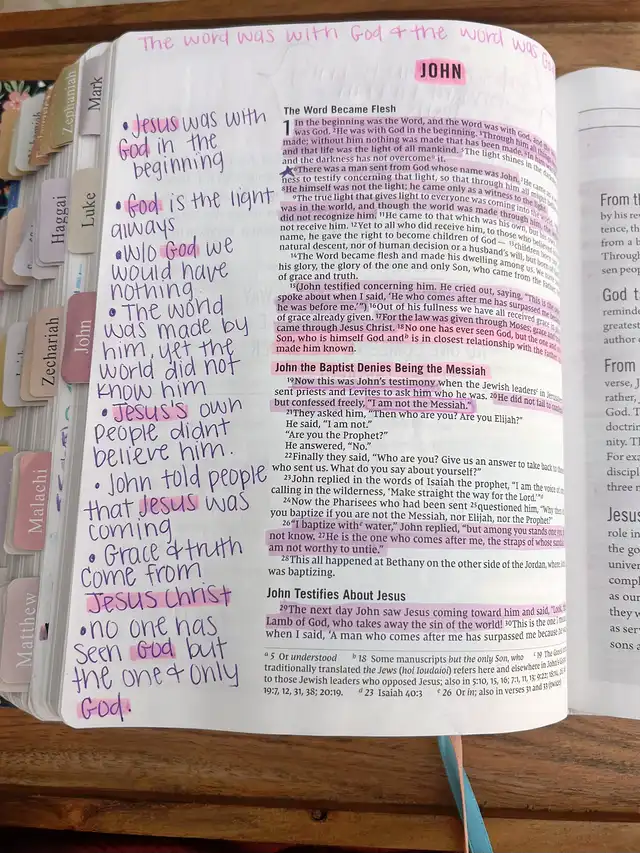 The word was with God & the word was God
JOHN
• Jesus was with
God in the
beginning
• God is the light
always
• W/o God we
would have
nothing.
• The world
was made by
him, yet the
world did not
know him
• Jesus's own
people didnt
believe him.
• John told people
that Jesus was
coming
• Grace & truth
come from
Jesus Christ
• no one has
seen God but
the one & only
God.
The Word Became Flesh
1 In the beginning was the Word, and the Word was with God, and the
was God. 2He was with God in the beginning. 3Through him all
made; without him nothing was made that has been made. 4In him
and that life was the light of all mankind. 5The light shines in the
and the darkness has not overcome a it.
6There was a man sent from God whose name was John. 7He came as
ness to testify concerning that light, so that through him all
8He himself was not the light; he came only as a witness to the
9The true light that gives light to everyone was coming into the
was in the world, and though the world was made through him, the
did not recognize him. 11He came to that which was his own, but
not receive him. 12Yet to all who did receive him, to those who believed
name, he gave the right to become children of God— 13children
natural descent, nor of human decision or a husband's will, but
14The Word became flesh and made his dwelling among us. We
his glory, the glory of the one and only Son, who came from the Father,
of grace and truth.
15(John testified concerning him. He cried out, saying, "This is the
spoke about when I said, 'He who comes after me has surpassed me
he was before me.'") 16Out of his fullness we have all received grace
of grace already given. 17For the law was given through Moses; grace and
came through Jesus Christ. 18No one has ever seen God, but the one and
Son, who is himself God and b is in closest relationship with the Father,
made him known.
John the Baptist Denies Being the Messiah
19Now this was John's testimony when the Jewish leaders c in
sent priests and Levites to ask him who he was. 20He did not fail to
but confessed freely, "I am not the Messiah."
21They asked him, "Then who are you? Are you Elijah?"
He said, "I am not."
"Are you the Prophet?"
He answered, "No."
22Finally they said, "Who are you? Give us an answer to take back to
who sent us. What do you say about yourself?"
23John replied in the words of Isaiah the prophet, "I am the voice of
calling in the wilderness, 'Make straight the way for the Lord.'" d
24Now the Pharisees who had been sent 25questioned him, "Why then
you baptize if you are not the Messiah, nor Elijah, nor the Prophet?"
26"I baptize with e water," John replied, "but among you stands one you
not know. 27He is the one who comes after me, the straps of whose
am not worthy to untie."
28This all happened at Bethany on the other side of the Jordan, where
was baptizing.
John Testifies About Jesus
29The next day John saw Jesus coming toward him and said, "Look, the
Lamb of God, who takes away the sin of the world! 30This is the one I
when I said, 'A man who comes after me has surpassed me because
a 5 Or understood b 18 Some manuscripts but the only Son, who c 19 The
traditionally translated the Jews (hoi Ioudaioi) refers here and elsewhere in John's
to those Jewish leaders who opposed Jesus; also in 5:10, 15, 16; 7:1, 11, 13; 9:22;
19:7, 12, 31, 38; 20:19. d 23 Isaiah 40:3 e 26 Or in; also in verses 31 and 33 (twice)
Zephaniah
Mark
Haggai
Luke
Zechariah
John
Malachi
Matthew
From
by his
tence, th
from a
Through
sen peop
God t
reminde
greatest
author
From
verse,
rather,
God. T
doctrin
nity. Th
For exa
discipl
three
Jesus
role in
the go
univer
comple
as our
they w
as ser
sons a